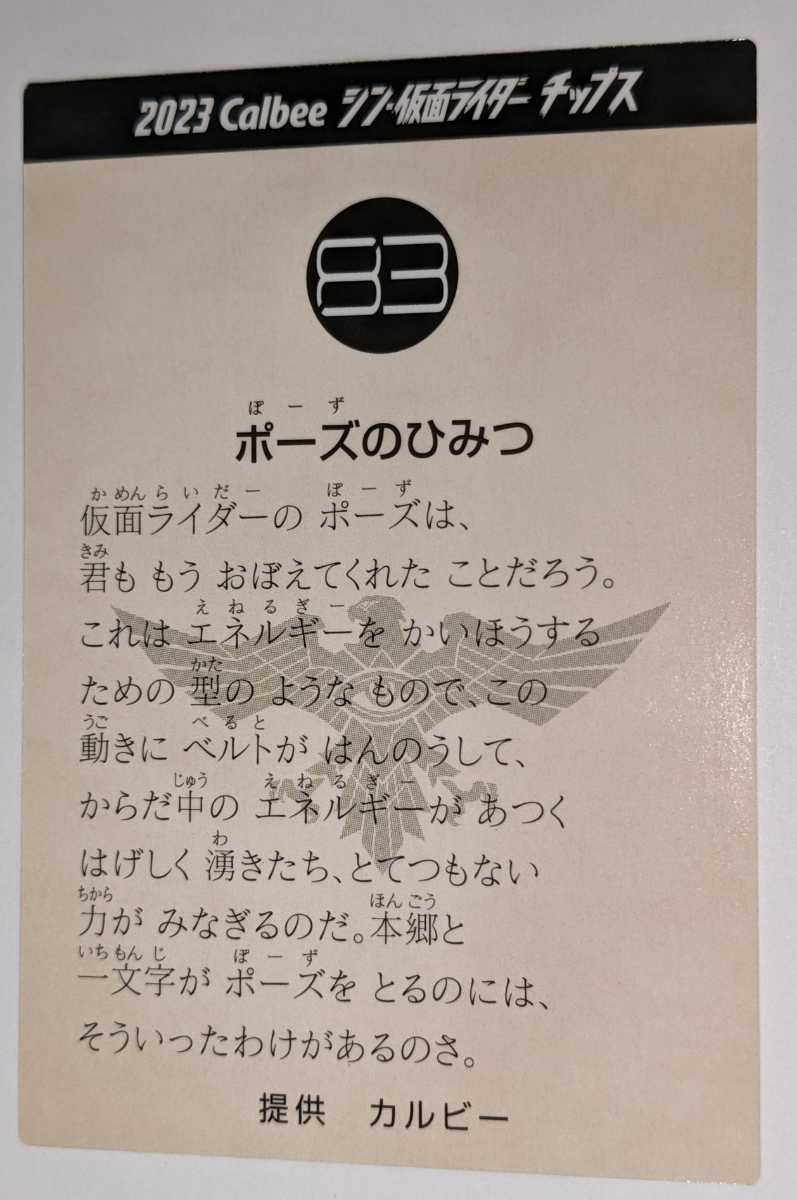 2023 Calbee シン・仮面ライダー チップス
83
ぽーず
ポーズのひみつ
かめんらいだー ぽーず
仮面ライダーの ポーズは、
きみ
君も もう おぼえてくれた ことだろう。
えねるぎー
これは エネルギーを かいほうする
かた
ための 型の ような もので、この
うご べると
動きに ベルトが はんのうして、
じゅう えねるぎー
からだ中の エネルギーが あつく
わ
はげしく 湧きたち、とてつもない
ちから ほんごう
力が みなぎるのだ。本郷と
いちもんじ ぽーず
一文字が ポーズを とるのには、
そういったわけがあるのさ。
提供 カルビー